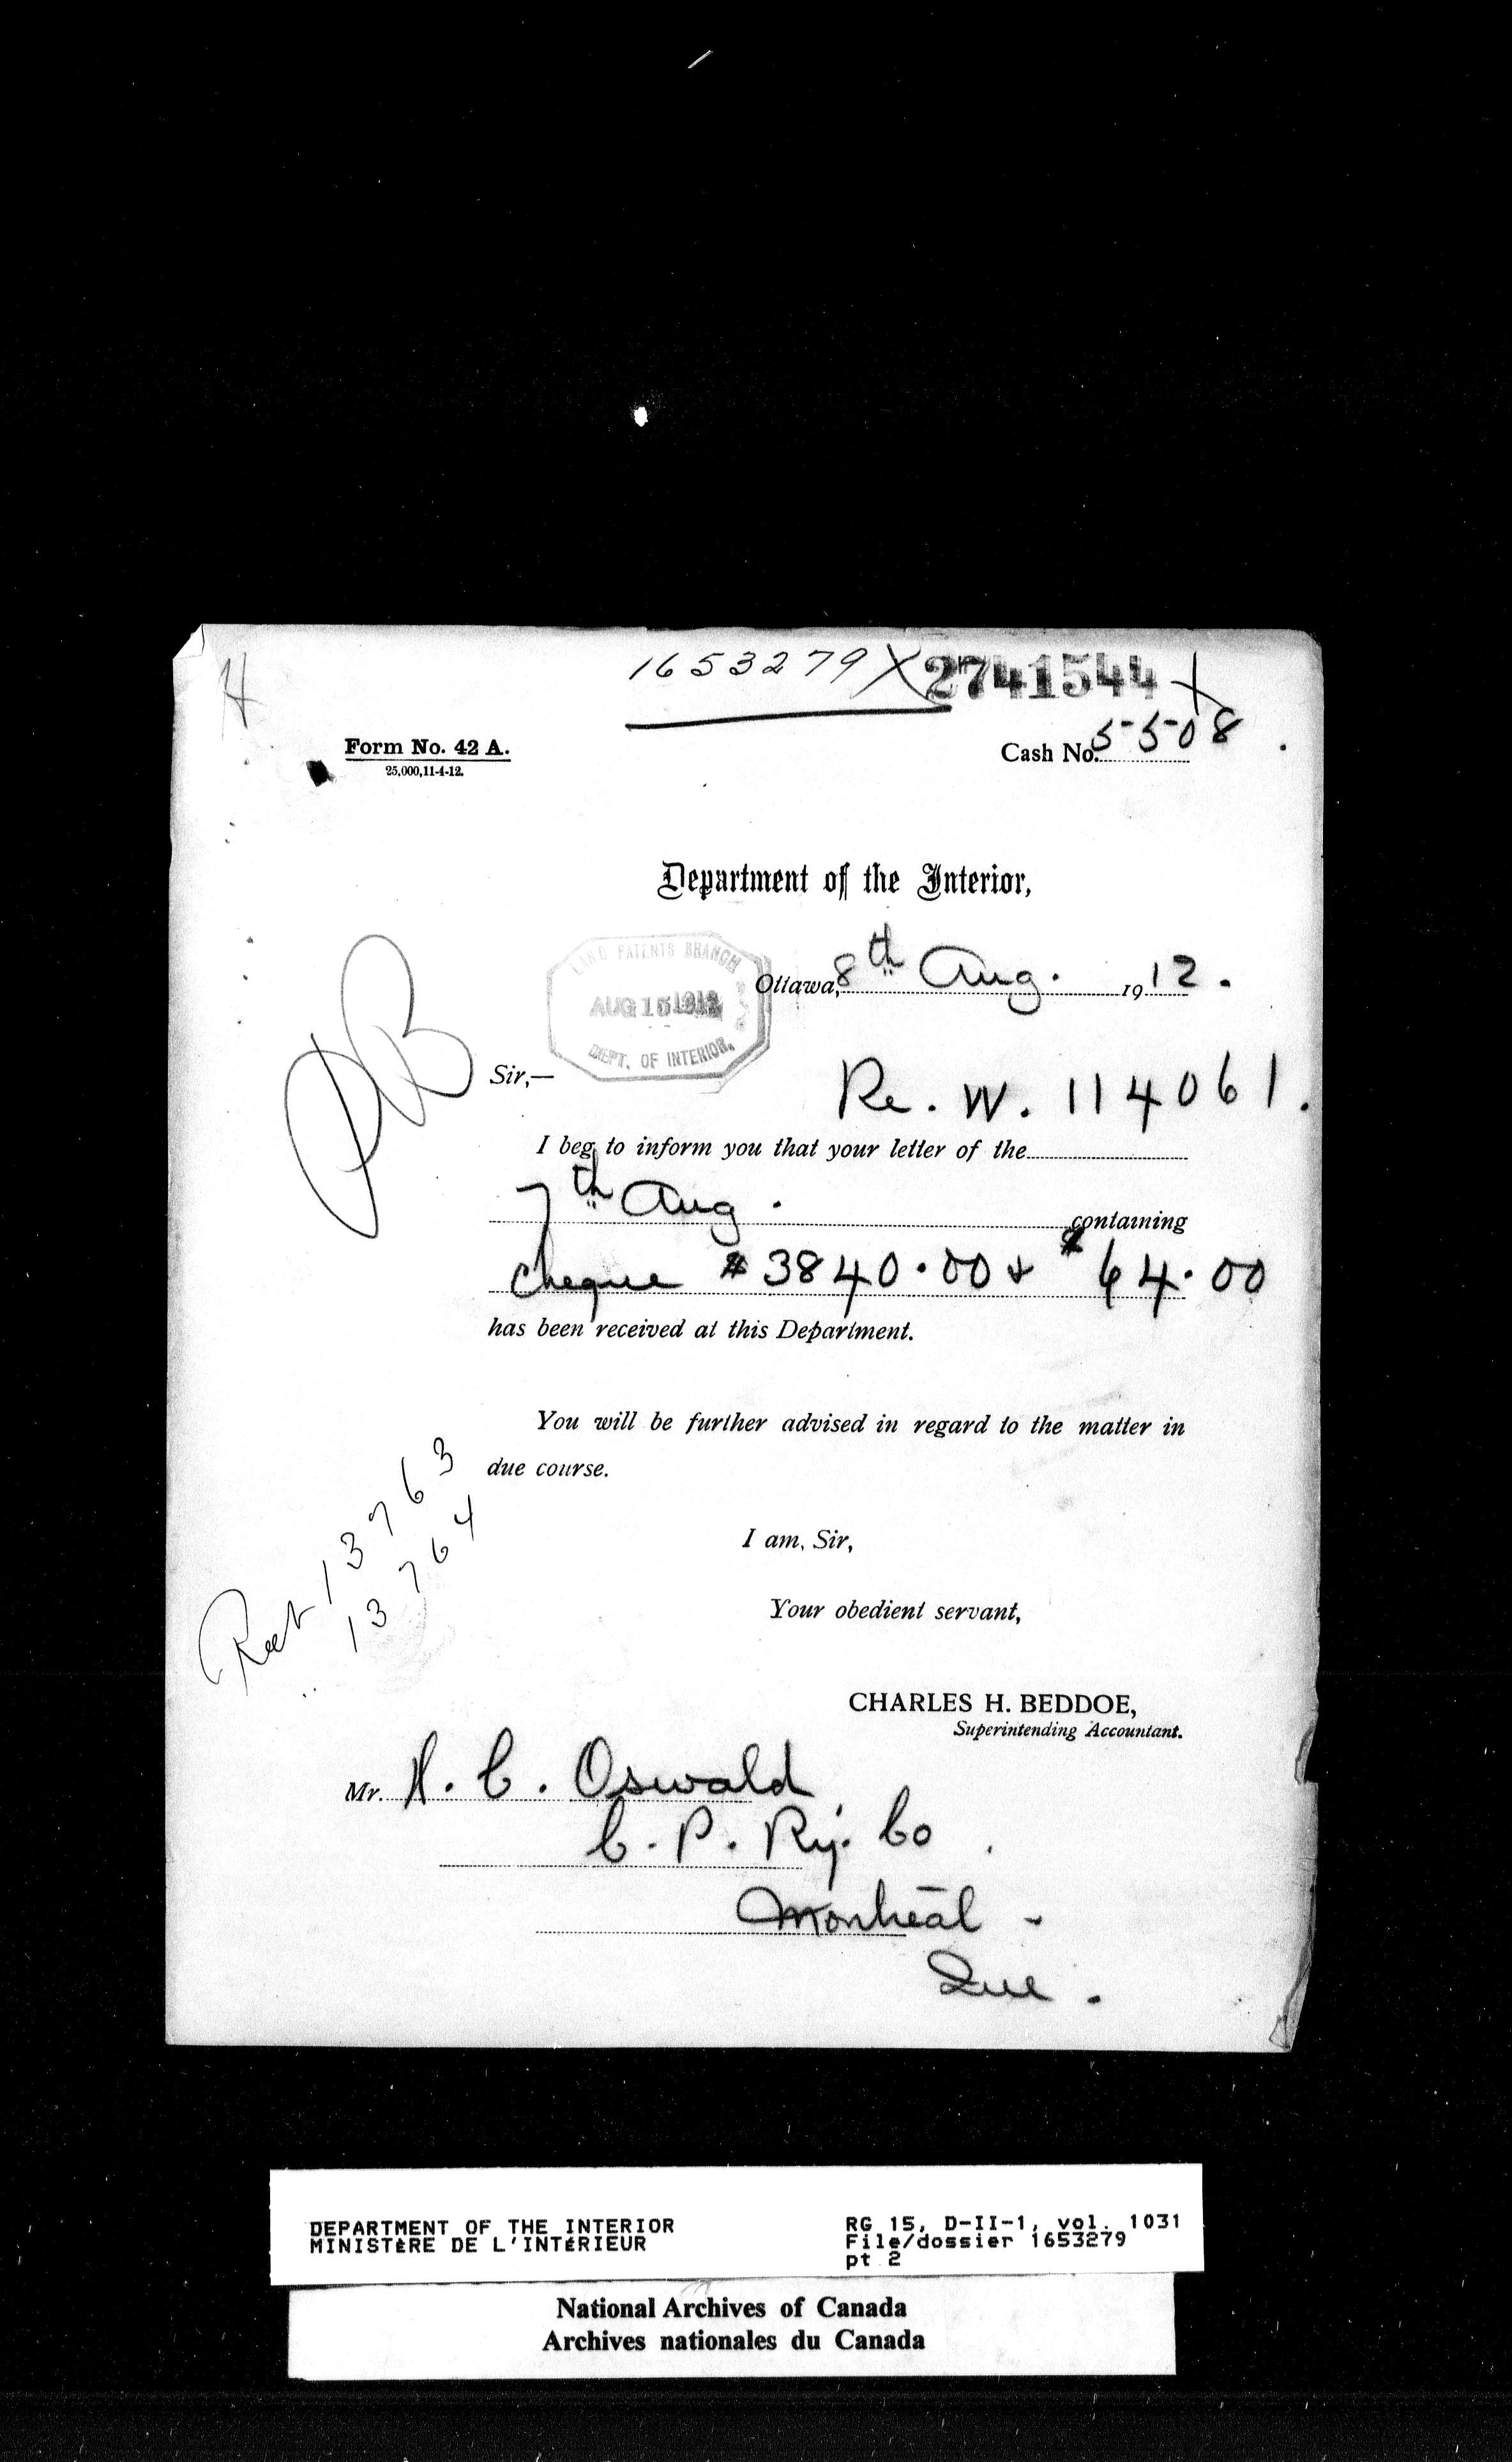 H
1653279 X 2741544 X
Form No. 42 A.
25,000,11-4-12.
Cash No. 5508.
Department of the Interior,
LAND PATENTS BRANCH
AUG 15 1912
DEPT. OF INTERIOR.
Ottawa, 8th Aug. 1912.
Sir,—
Re. W. 114061.
I beg to inform you that your letter of the
7th Aug. containing
cheque $3840.00 & $64.00
has been received at this Department.
You will be further advised in regard to the matter in
due course.
Rect 13763
13764
I am, Sir,
Your obedient servant,
CHARLES H. BEDDOE,
Superintending Accountant.
Mr. H. C. Oswald
C. P. Ry. Co.
Montreal -
Que.
DEPARTMENT OF THE INTERIOR
MINISTÈRE DE L'INTÉRIEUR
RG 15, D-II-1, vol. 1031
File/dossier 1653279
pt 2
National Archives of Canada
Archives nationales du Canada